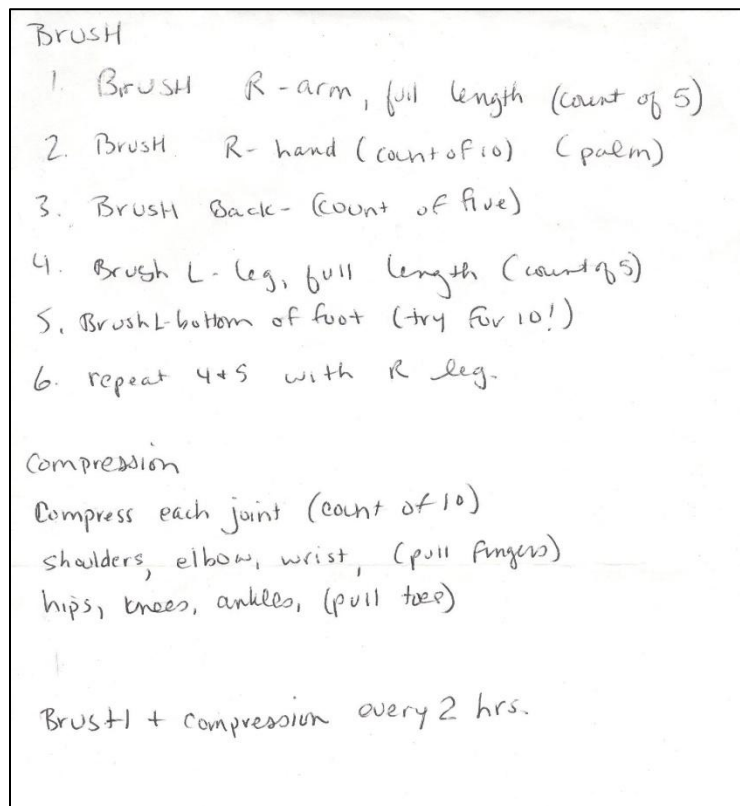 BrusH
1. BrusH R-arm, full length (count of 5)
2. BrusH R-hand (count of 10) (palm)
3. BrusH Back- (count of five)
4. Brush L-leg, full length (count of 5)
5. Brush L-bottom of foot (try for 10!)
6. repeat 4+5 with R leg.
Compression
Compress each joint (count of 10)
shoulders, elbow, wrist, (pull fingers)
hips, knees, ankles, (pull toes)
BrusH + compression every 2 hrs.